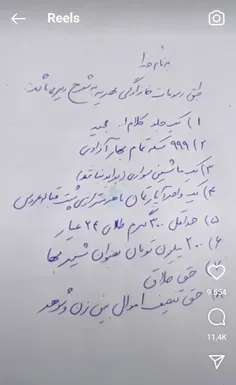 Reels
بنام خدا
طبق رسومات خانوادگی مهریه به شرح زیر می باشد
۱) یک جلد کلام ا... مجید
۲) ۹۹۹ سکه تمام بهار آزادی
۳) یک ماشین سواری
۴) یک واحد آپارتمان پشت قباله عروس
۵) حداقل ۳۰۰ گرم طلای ۲۴ عیار
۶) ۲۰۰ میلیون تومان بعنوان شیر بها
حق طلاق
حق تنصیف اموال بین زن و شوهر
9,554
11.4K